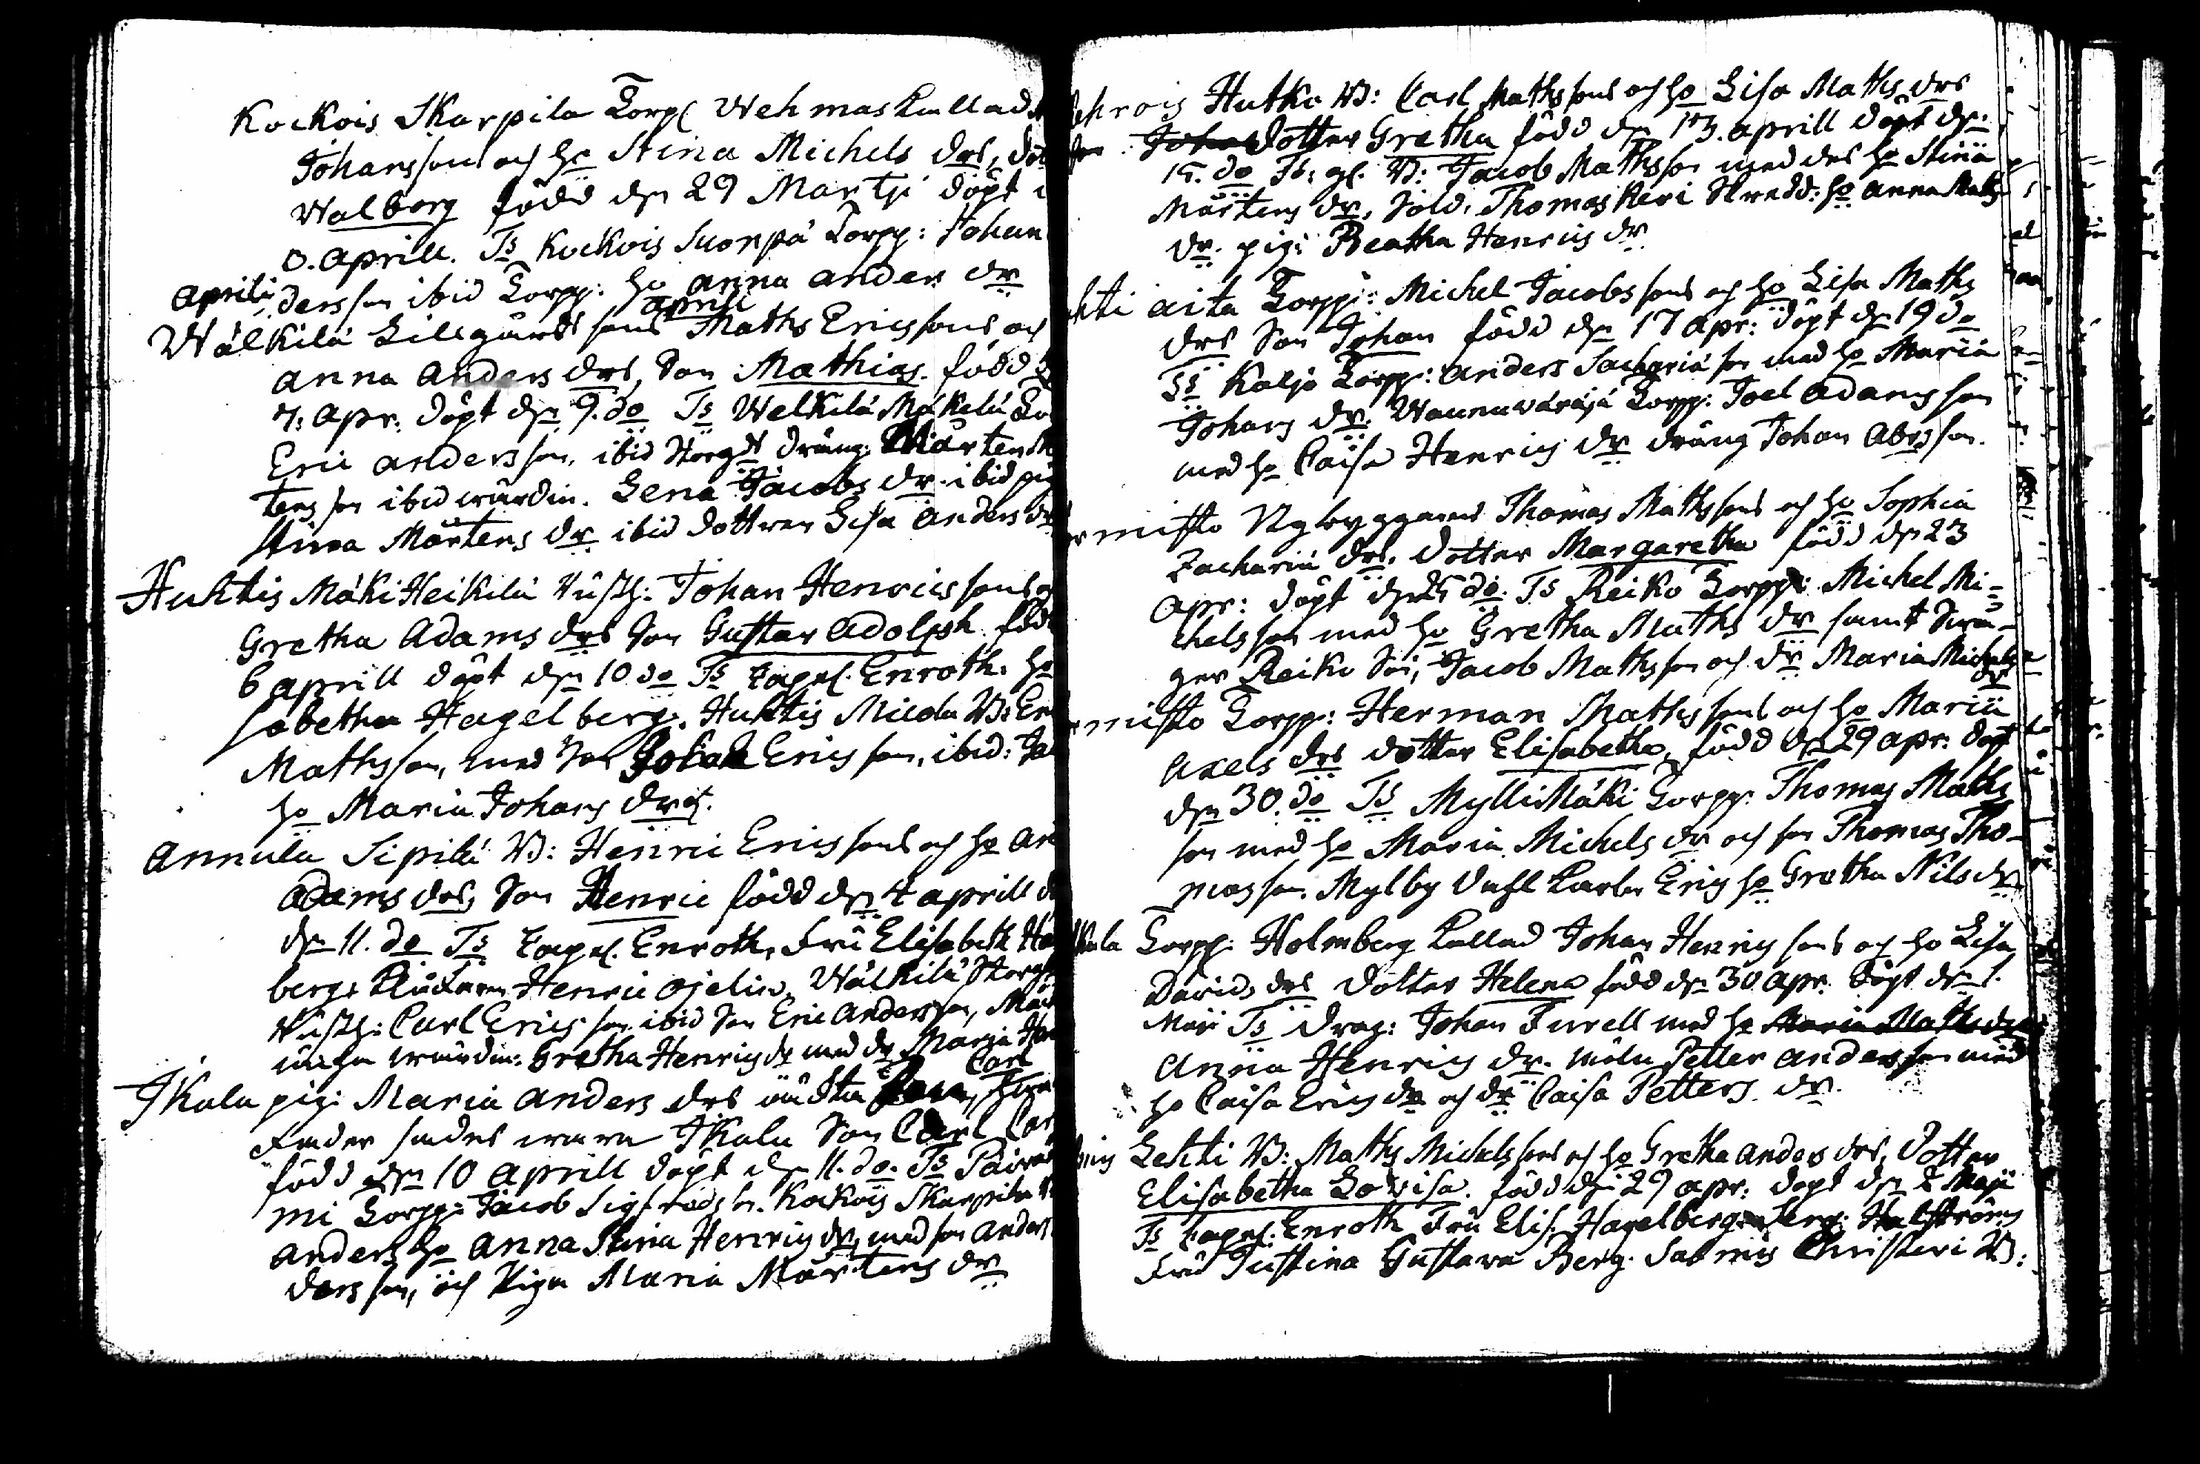 Kockois Skarpila Torp( Wehmas kallad
Johanssons och ho Stina Michels drs, dot
Walborg född dn 29 Martji döpt
0. Aprill. Ts Kockois Suonpä Torpp: Johan
Aprili derssson ibid Torpp: ho Anna Anders dr
aprill
Wälkilä Lillgårds sons Maths Ericssons och
Anna Anders drs, Son Mathias. född
7: Apr. döpt dn 9. do Ts Welkilä Mäkelä
Eric Andersson, ibid Storgds dräng: Mårten
tens son ibid wärdin. Lena Jacobs dr. ibid pig
Stina Mårtens dr ibid dottren Lisa Anders dr
Huhtis Mäki Heikilä Rusth: Johan Henrics sons
Gretha Adams drs Son Gustav Adolph. född
6 aprill döpt dn 10 do Ts Capel. Enroth. ho
sabetha Hagelberg, Huhtis Micola B: Er
Mathsson, med son Johan Ericsson, ibid:
ho Maria Johans drs.
Annula Sipilä B: Henric Erics sons och ho An
Adams drs, Son Henric född dn 4 aprill
dn 11. do Ts Capel. Enroth, Fru Elisabeth Ha
berg, Klockaren Henric Ojelin, Wälkilä Storgds
Rusth: Carl Erics son ibid Son Eric Andersson,
unga wärdin: Gretha Henrics dr med dr Maria
Carl
Ikala pig: Maria Anders drs oächta Son,
Fader sades wara Ikala Son Carl Carl
född dn 10 Aprill döpt dn 11. do. Ts Päivä
mi Torpp: Jacob Sigfreds s. Kockois Skarpila
Anders ho Anna Stina Henrics dr, med son Anders
dersson, och Pigan Maria Mårtens dr
ehrois Hutko B: Carl Mathssons och ho Lisa Maths drs
Dotter Gretha född dn 13. aprill döpt dn
15. do Ts: gl. B: Jacob Mathsson med des ho Stina
Mårtens dr, Sold. Thomas Heri Skredd: ho Anna Maths
dr. pig: Beatha Henrics dr
hti aita Torpp: Michel Jacobssons och ho Lisa Maths
drs Son Johan född dn 17 apr: döpt dn 19 do
Ts Kaljo Torpp: Anders Sachariä son med ho Maria
Johans dr. Torpp: Joel Adamsson
med ho Caisa Henrics dr dräng Johan Abrsson.
misto Nybyggarens Thomas Mathssons och ho Sophia
Zachariä drs, dotter Margaretha född dn 23
Apr: döpt dn 25 do. Ts Reiko Torpp: Michel Mi=
chelsson med ho Gretha Maths dr samt Swå-
ger Reiko Son, Jacob Mathsson och dr Maria Michels
dr
misto Torpp: Herman Mathssons och ho Maria
Axels drs dotter Elisabetha, född dn 29 apr. döpt
dn 30. do Ts MylliMäki Torpp. Thomas Maths
son med ho Maria Michels dr och son Thomas Tho-
masson. Mylby Eric ho Gretha Nils dr
kala Torpp: Holmberg kallad Johan Henrics sons och ho Lisa
Davids drs Dotter Helena född dn 30 apr. döpt dn 1.
Maji Ts Drag: Johan Furell med ho Maria Maths dr
Anna Henrics dr. möln Petter Andersson med
ho Caisa Erics dr och dr Caisa Petters dr.
Lehti B: Maths Michelssons och ho Gretha Anders drs, Dotter
Elisabetha Lovisa. född dn 29 apr: döpt dn 2 Maji
Ts Capel: Enroth Fru Elis: Hagelberg, Serg: Halströms
Fru Justina Gustava Berg. Salmis Christeri B: